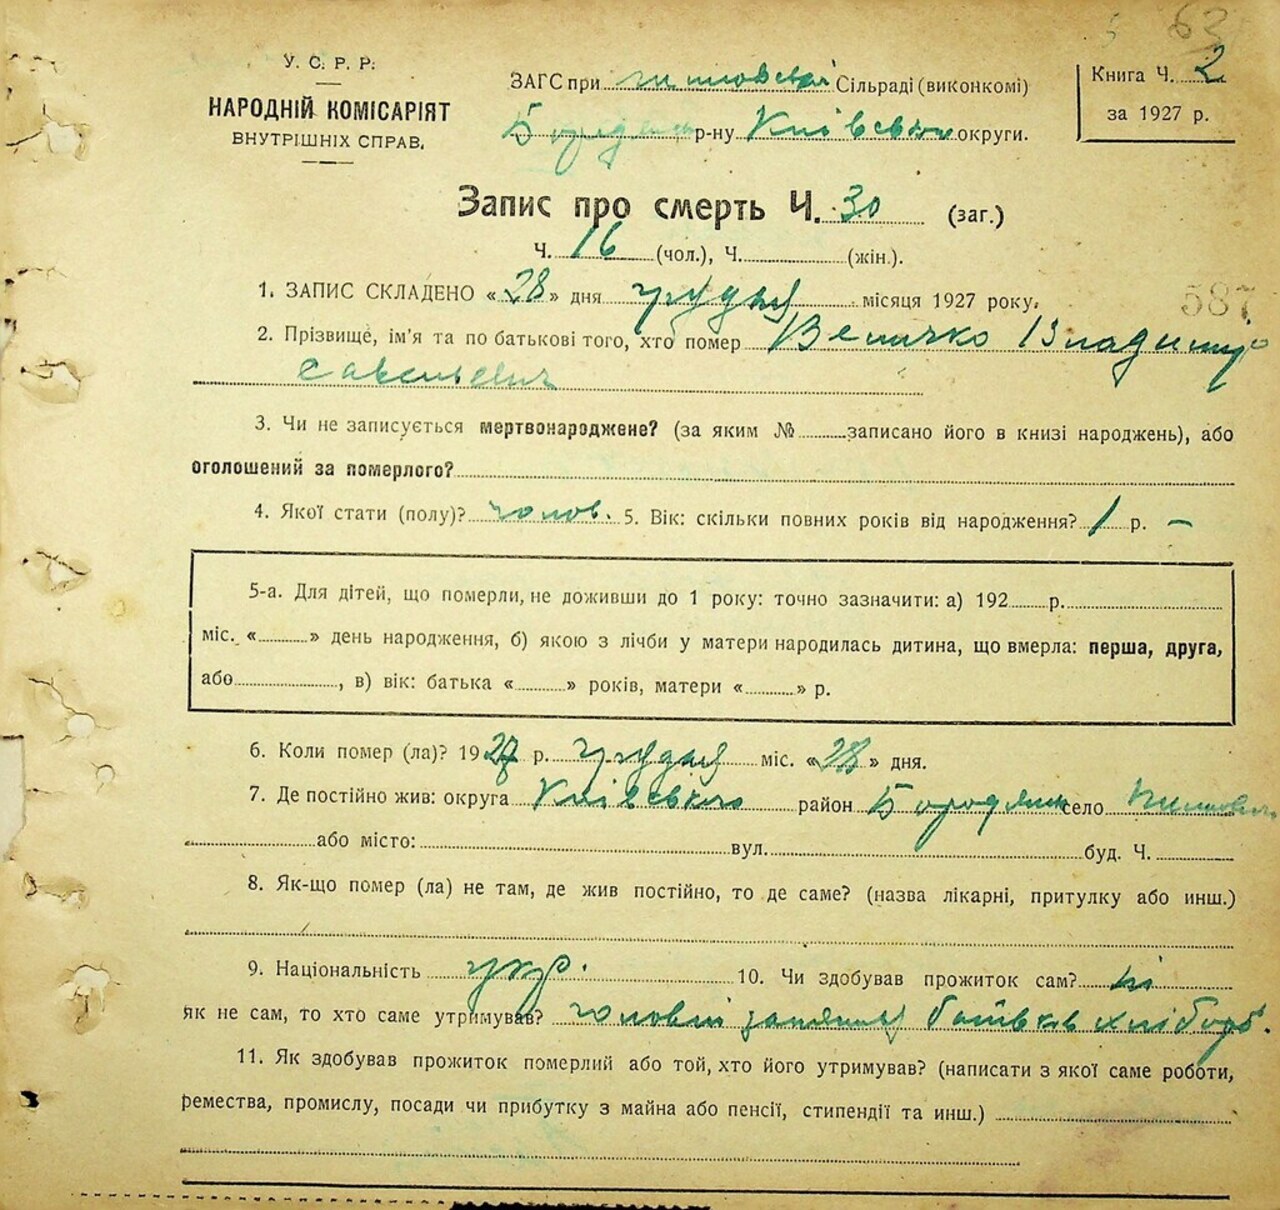 63
У. С. Р. Р.
НАРОДНІЙ КОМІСАРІЯТ
ВНУТРІШНІХ СПРАВ.
ЗАГС при Сільраді (виконкомі)
р-ну Київської округи.
Книга Ч. 2
за 1927 р.
Запис про смерть Ч. 30 (заг.)
Ч. 16 (чол.), Ч. (жін.).
1. ЗАПИС СКЛАДЕНО «28» дня грудня місяця 1927 року.
587
2. Прізвище, ім'я та по батькові того, хто помер Величко Владимір
Савельевич
3. Чи не записується мертвонароджене? (за яким № записано його в книзі народжень), або
оголошений за померлого?
4. Якої стати (полу)? чолов. 5. Вік: скільки повних років від народження? 1 р. –
5-а. Для дітей, що померли, не доживши до 1 року: точно зазначити: а) 192 р.
міс. « » день народження, б) якою з лічби у матери народилась дитина, що вмерла: перша, друга,
або , в) вік: батька « » років, матери « » р.
6. Коли помер (ла)? 1927 р. грудня міс. «28» дня.
7. Де постійно жив: округа Київська район Бородянск село
або місто: вул. буд. Ч.
8. Як-що помер (ла) не там, де жив постійно, то де саме? (назва лікарні, притулку або инш.)
9. Національність укр. 10. Чи здобував прожиток сам? ні
як не сам, то хто саме утримував? головні заняття батьків хлібороб.
11. Як здобував прожиток померлий або той, хто його утримував? (написати з якої саме роботи,
ремества, промислу, посади чи прибутку з майна або пенсії, стипендії та инш.)